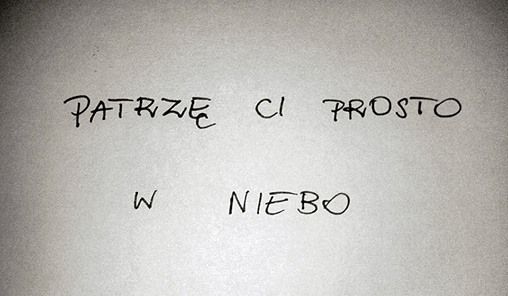 PATRZĘ CI PROSTO
W NIEBO